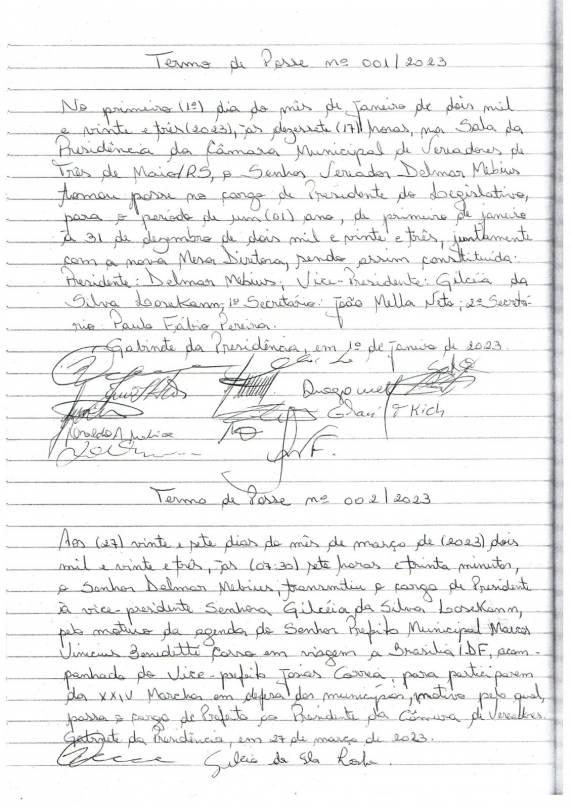 Termo de Posse nº 001/2023
No primeiro (1º) dia do mês de Janeiro de dois mil
e vinte e três (2023), às dezessete (17) horas, na Sala da
Presidência da Câmara Municipal de Vereadores de
Três de Maio/RS, o Senhor Vereador Delmar Mebius
tomou posse no cargo de Presidente do Legislativo,
para o período de um (01) ano, de primeiro de janeiro
à 31 de dezembro de dois mil e vinte e três, juntamente
com a nova Mesa Diretora, sendo assim constituída:
Presidente: Delmar Mebius; Vice-Presidente: Gilcéia da
Silva Loosekann; 1º Secretário: João Mella Neto; 2º Secretá-
rio Paulo Fábio Pereira.
Gabinete da Presidência, em 1º de Janeiro de 2023.
Kich
Termo de Posse nº 002/2023
Aos (27) vinte e sete dias do mês de março de (2023) dois
mil e vinte e três, às (07:30) sete horas e trinta minutos,
o Senhor Delmar Mebius, transmitiu o cargo de Presidente
à vice-presidente Senhora Gilcéia da Silva Loosekann,
pelo motivo da agenda do Senhor Prefeito Municipal Marcos
Vinicius Benedetti Corso em viagem a Brasília/DF, acom-
panhado do Vice-prefeito Jonas Correa, para participarem
da XXIV Marcha em defesa dos municípios, motivo pelo qual,
passa o cargo de Prefeito ao Presidente da Câmara de Vereadores.
Gabinete da Presidência, em 27 de março de 2023.